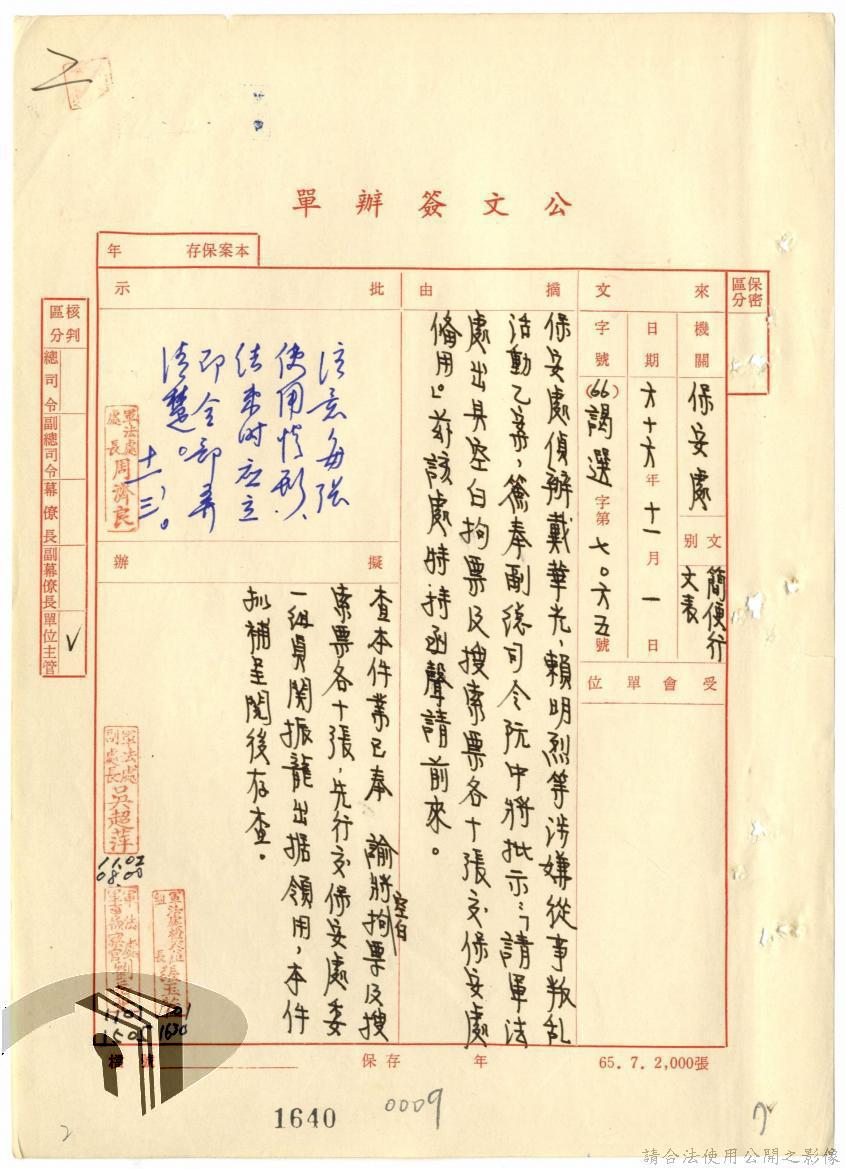 公文簽辦單
本案保存 年
保密區分
來文
機關
保安處
文別
簡便行文表
日期
六十六年十一月一日
字號
(66)謁選字第七〇六五號
受會單位
摘由
保安處偵辦戴華光、賴明烈等涉嫌從事叛亂
活動乙案,簽奉副總司令阮中將批示:「請軍法
處出具空白拘票及搜索票各十張交保安處
備用」。茲該處特持函聲請前來。
批示
注意每張
使用情形,
結束時應立
即全部弄
清楚。
十一、三。
軍法處處長周濟良
擬辦
查本件業已奉 諭將空白拘票及搜
索票各十張,先行交保安處委
一組員關振龍出据領用,本件
擬補呈閱後存查。
軍法處副處長吳超萍
11.02
08.00
1101
1505
1630
核判區分
總司令
副總司令
幕僚長
副幕僚長
單位主管
✓
檔號
保存 年
65.7.2,000張
1640
0009
2
請合法使用公開之影像